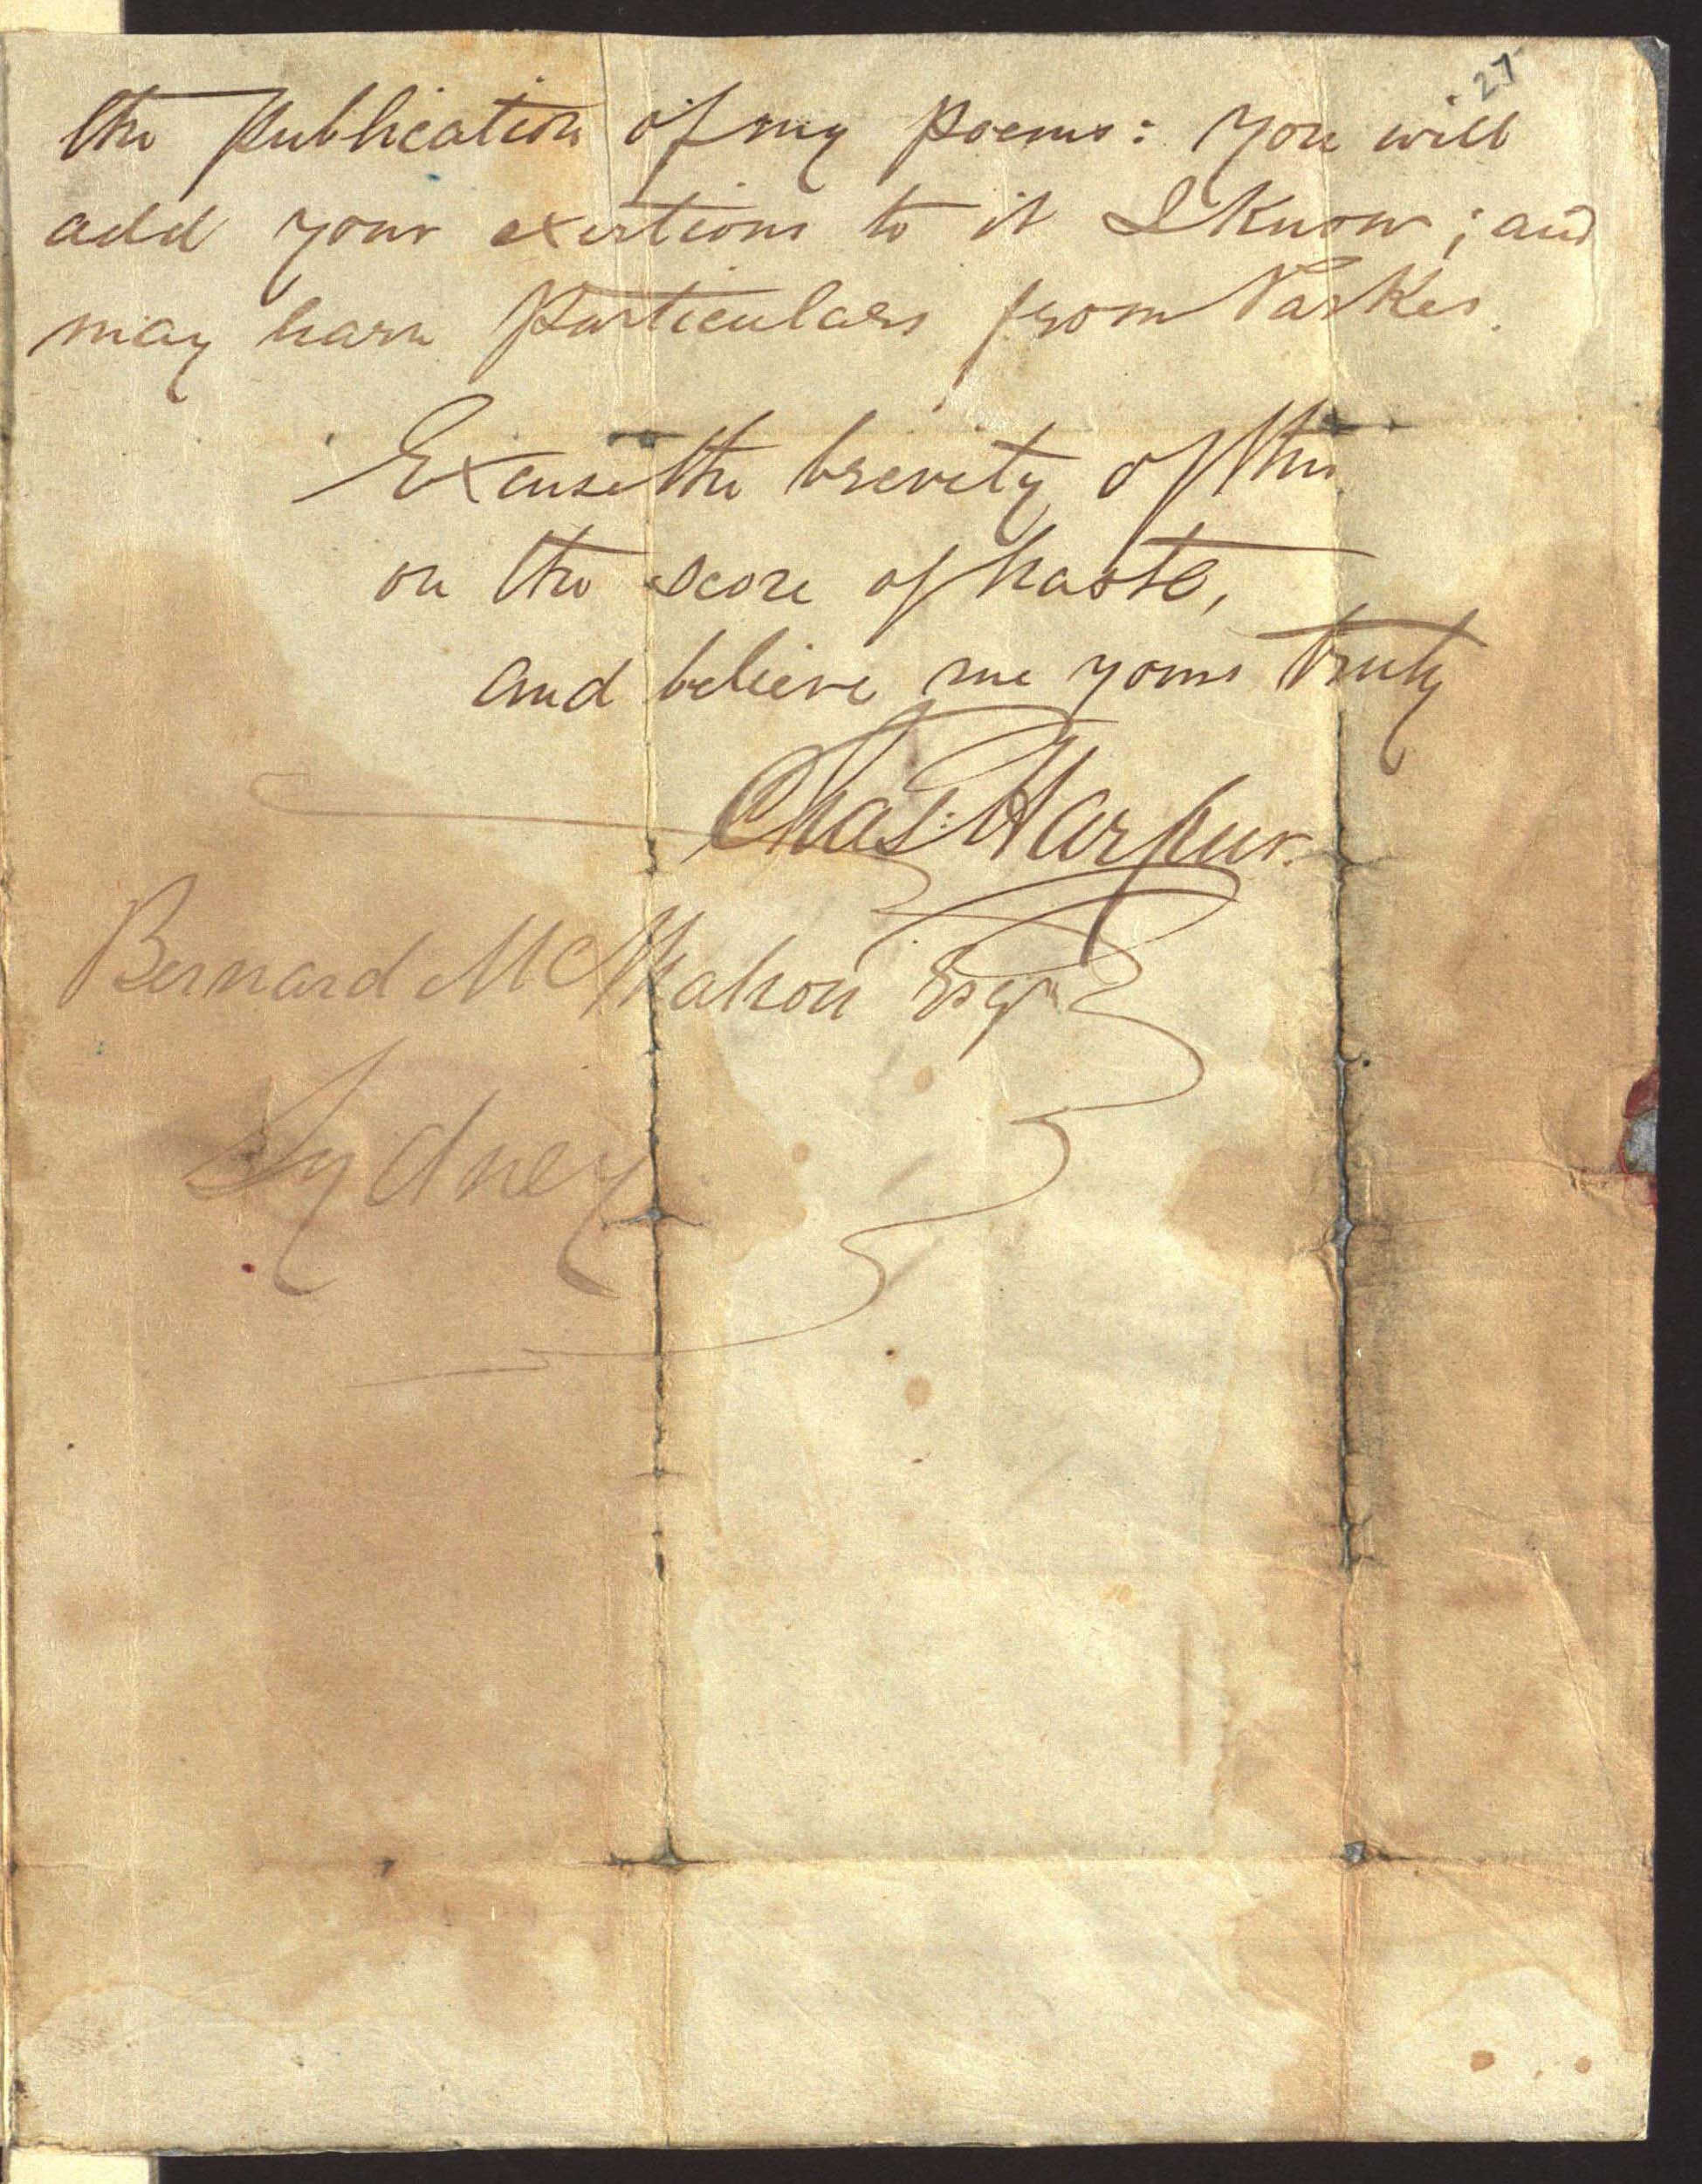 27
the publication of my poems: you will
add your exertions to it I know; and
may learn particulars from Parkes.
Excuse the brevity of this
on the score of haste,
and believe me yours truly
Chas: Harpur.
Bernard McMahon Esqr
Sydney